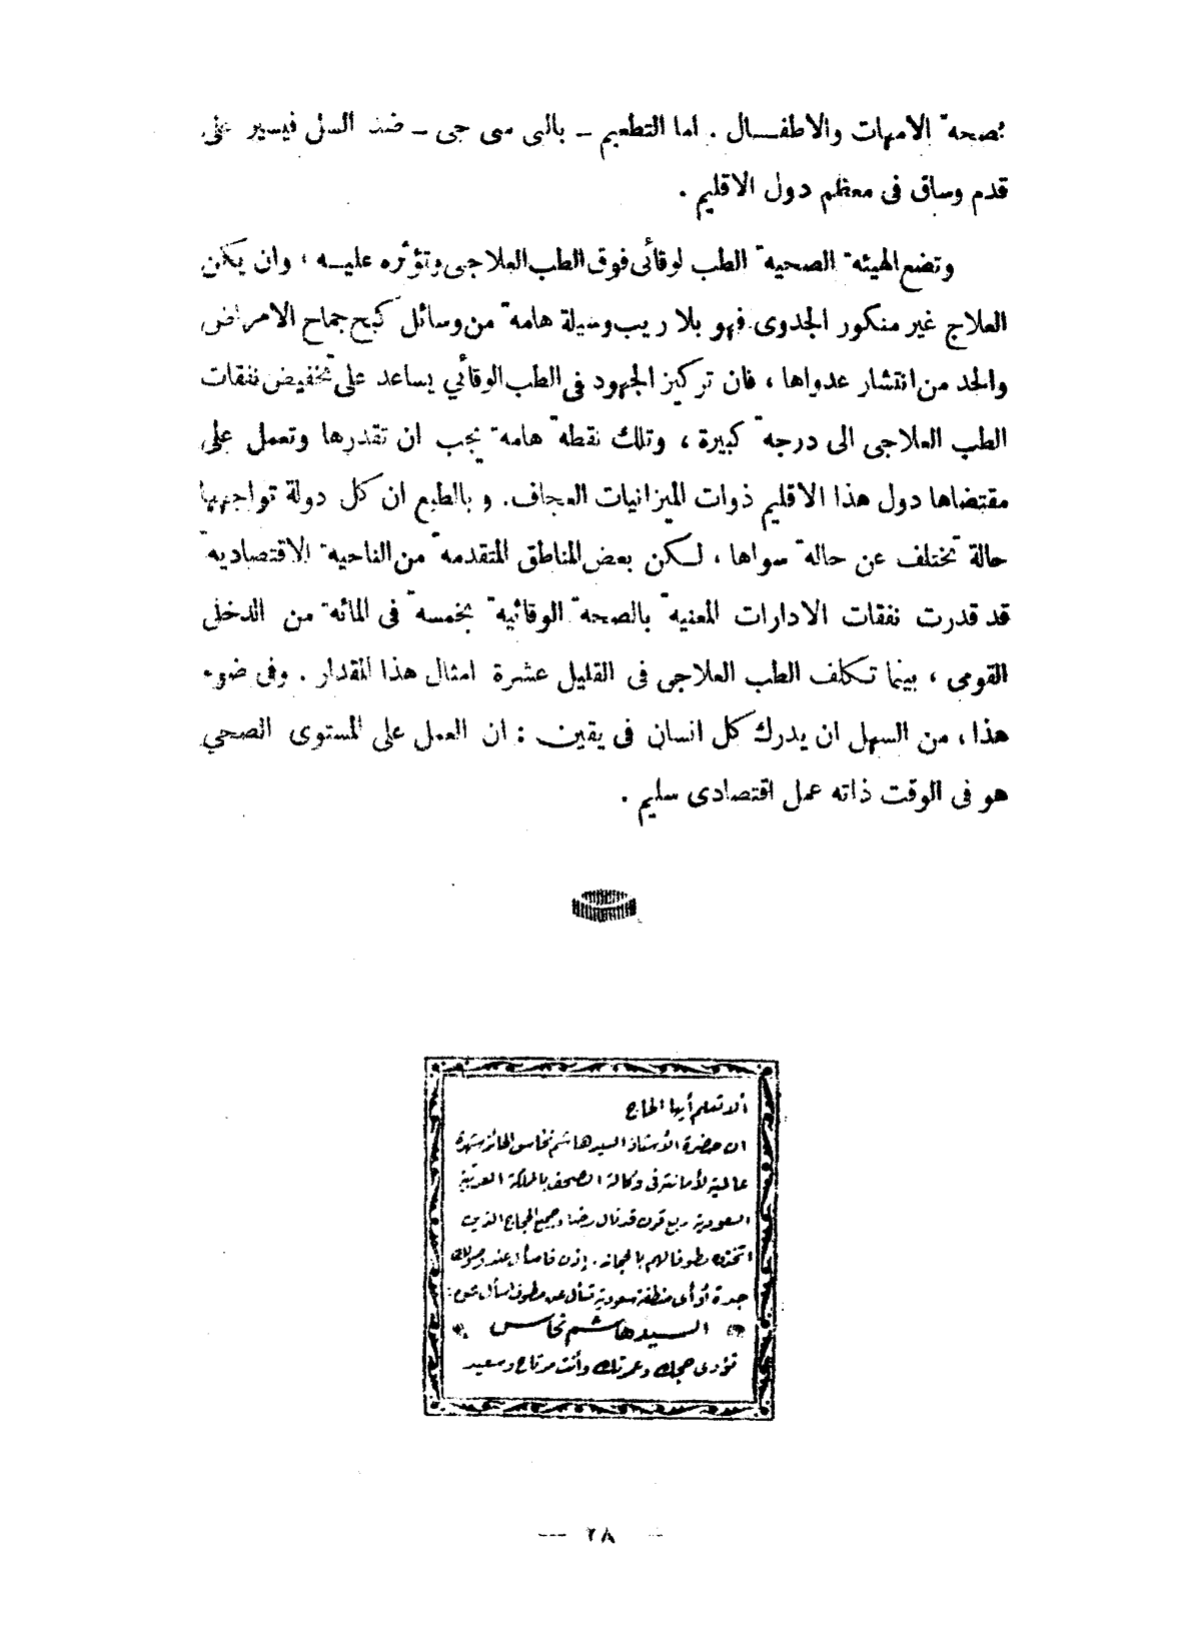 بصحة الامهات والاطفال . اما التطعيم – بالبى سى جى – ضد السل فيسير على
قدم وساق فى معظم دول الاقليم .
وتضع الهيئة الصحية الطب لوقائى فوق الطب العلاجى وتؤثره عليه ، وان يكن
العلاج غير منكور الجدوى فهو بلا ريب وسيلة هامة من وسائل كبح جماح الامراض
والحد من انتشار عدواها ، فان تركيز الجهود فى الطب الوقائي يساعد على تخفيض نفقات
الطب العلاجى الى درجة كبيرة ، وتلك نقطة هامة يجب ان تقدرها وتعمل على
مقتضاها دول هذا الاقليم ذوات الميزانيات العجاف . وبالطبع ان كل دولة تواجهها
حالة تختلف عن حالة سواها ، لكن بعض المناطق المتقدمة من الناحية الاقتصادية
قد قدرت نفقات الادارات المعنية بالصحة الوقائية بخمسة فى المائة من الدخل
القومى ، بينما تكلف الطب العلاجى فى القليل عشرة امثال هذا المقدار . وفى ضوء
هذا ، من السهل ان يدرك كل انسان فى يقين : ان العمل على المستوى الصحي
هو فى الوقت ذاته عمل اقتصادى سليم .
ألا تعلم أيها الحاج
ان حضرة الأستاذ السيد هاشم نحاس الحائز شهرة
عالمية لأمانته فى وكالة الصحف بالمملكة العربية
السعودية ربع قرن قد نال رضا جميع الحجاج الذين
اتخذوه مطوفا لهم بالحجاز . إذن فاسأل عند وصولك
جدة أو أى منطقة سعودية تسأل عن مطوف اسأل
السيد هاشم نحاس
تؤدى حجك وعمرتك وأنت مرتاح وسعيد
— ٢٨ —